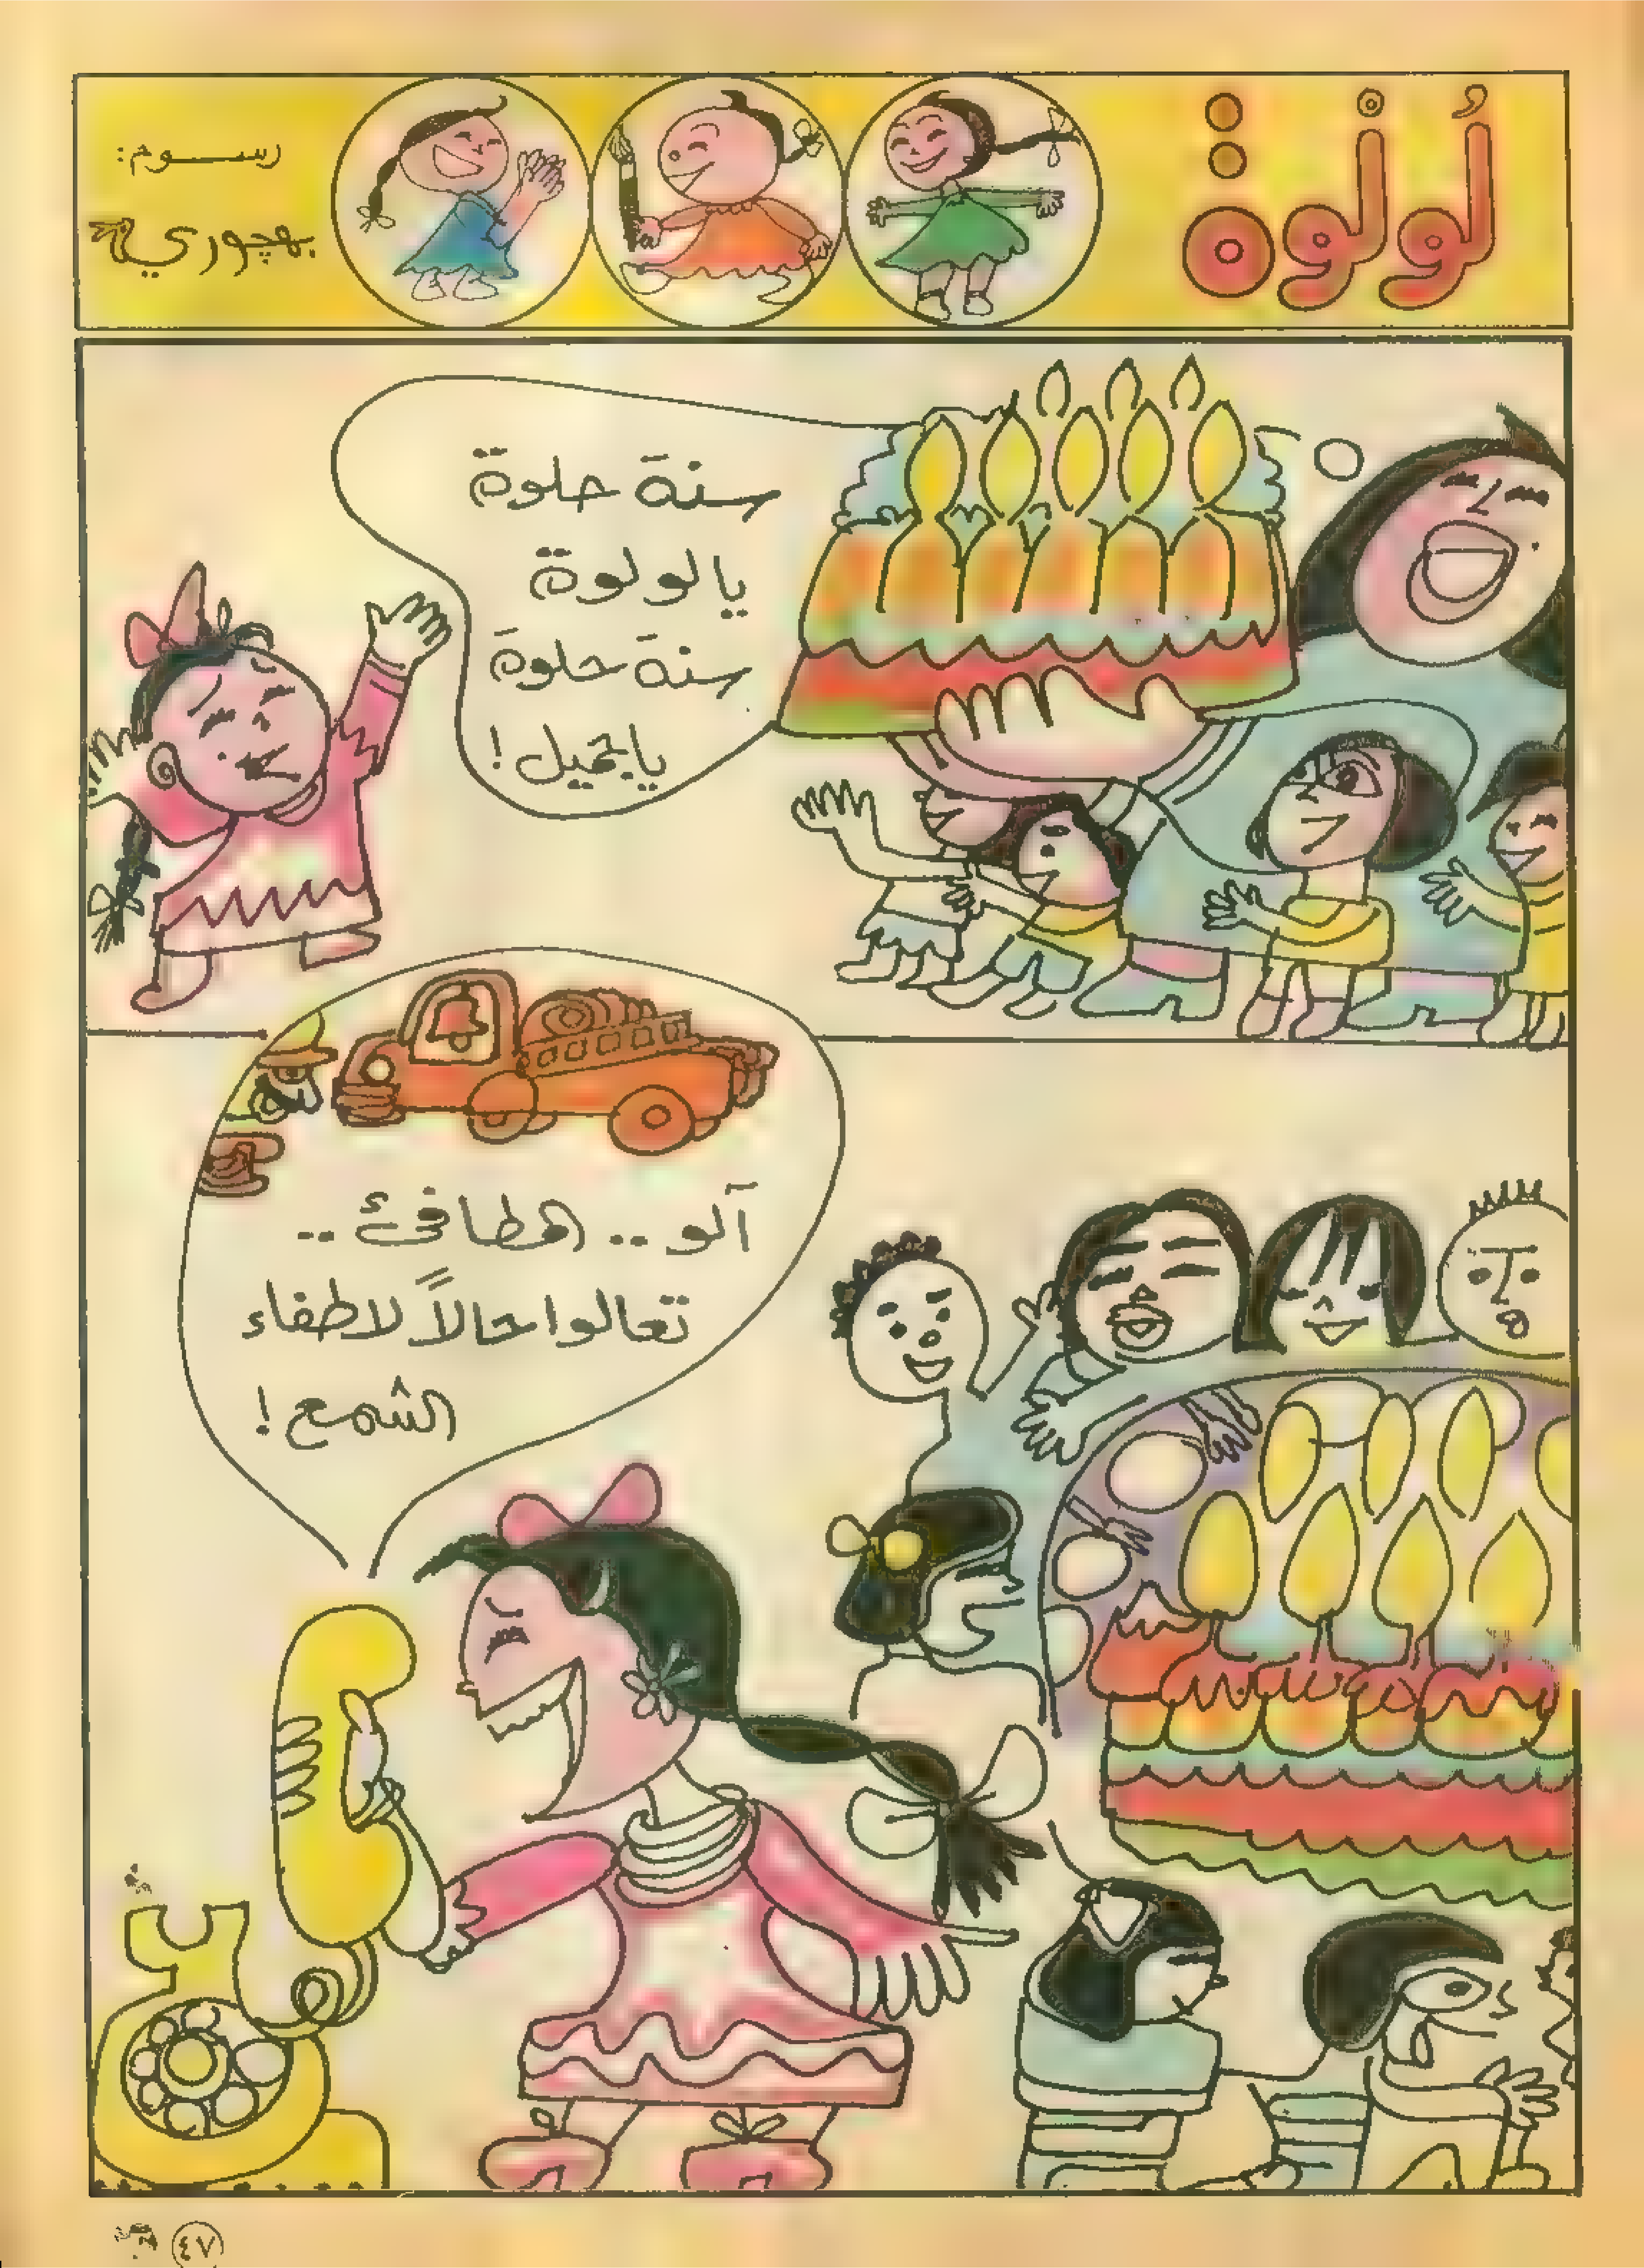 لُولْوة
رسوم:
بهجوري
سنة حلوة
يا لولوة
سنة حلوة
يا جميل!
آلو .. المطافئ ..
تعالوا حالاً لاطفاء
الشمع!
٤٧